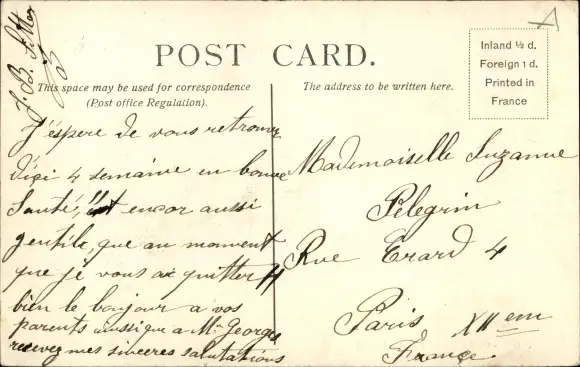 POST CARD.
This space may be used for correspondence
(Post office Regulation).
The address to be written here.
Inland ½ d.
Foreign 1 d.
Printed in
France
J'éspere de vous retrouver
d'ici 4 semaine en bonne
Santé, !! encor aussi
gentile, que au moment
que jé vous ai quitter !!
bien le bonjour a vos
parents aussi qu a Mr Georges
recevez mes sinceres salutations
Mademoiselle Suzanne
Pélegrin
Rue Erard 4
Paris XII em
France.